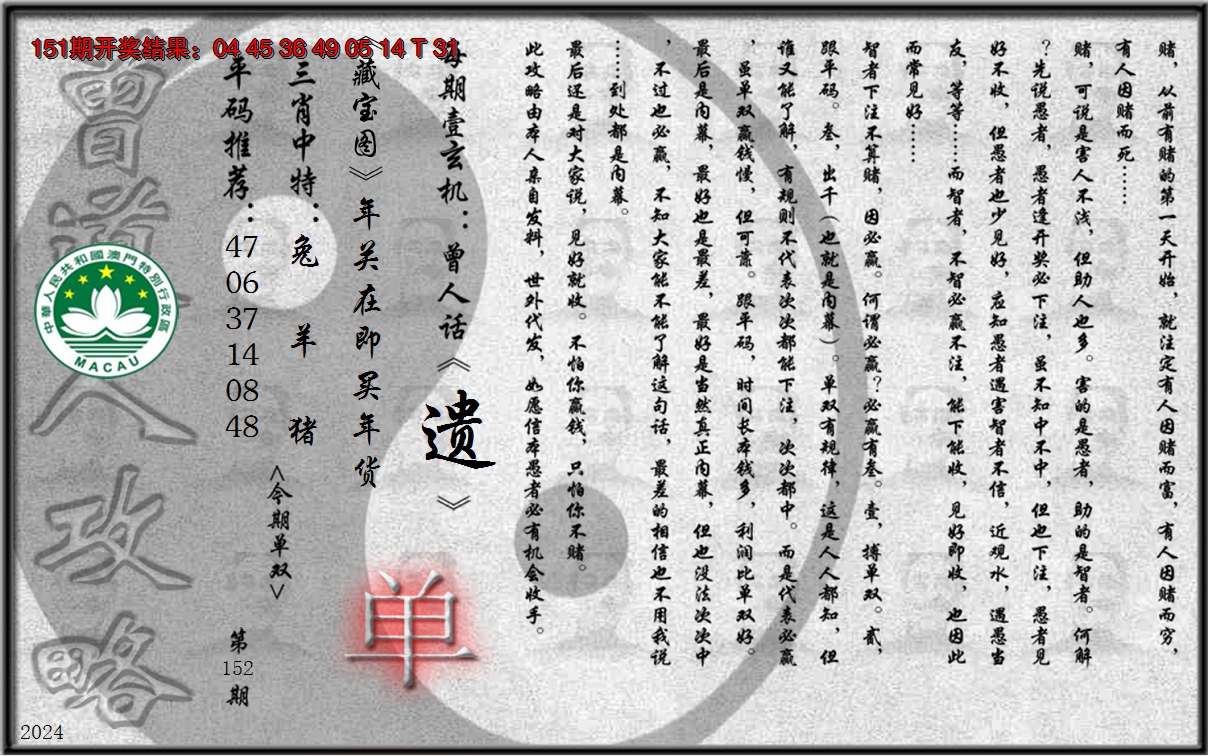 151期开奖结果：04 45 36 49 05 14 T 31
赌，从前有赌的第一天开始，就注定有人因赌而富，有人因赌而穷，
有人因赌而死……
赌，可说是害人不浅，但助人也多。害的是愚者，助的是智者。何解
？先说愚者，愚者逢开奖必下注，虽不知中不中，但也下注，愚者见
好不收，但愚者也少见好，应知愚者遇害智者不信，近观水，遇愚当
友，等等……而智者，不智必赢不注，能下能收，见好即收，也因此
而常见好……
智者下注不算赌，因必赢。何谓必赢？必赢有叁。壹，搏单双。贰，
跟平码。叁，出千（也就是内幕）。单双有规律，这是人人都知，但
谁又能了解，有规则不代表次次都能下注，次次都中。而是代表必赢
，虽单双赢钱慢，但可靠。跟平码，时间长本钱多，利润比单双好。
最后是内幕，最好也是最差，最好是当然真正内幕，但也没法次次中
，不过也必赢，不知大家能不能了解这句话，最差的相信也不用我说
……到处都是内幕。
最后还是对大家说，见好就收。不怕你赢钱，只怕你不赌。
此攻略由本人亲自发料，世外代发，如愿信本愚者必有机会收手。
每期壹玄机：曾人话《遗》
《藏宝图》年关在即买年货
三肖中特：兔 羊 猪
平码推荐：47 06 37 14 08 48
<今期单双>
单
第152期
曾道人攻略
中華人民共和國澳門特別行政區
MACAU
2024